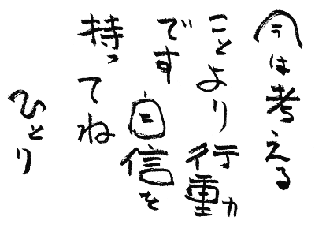 今は考える
ことより行動
です自信を
持ってね
ひとり